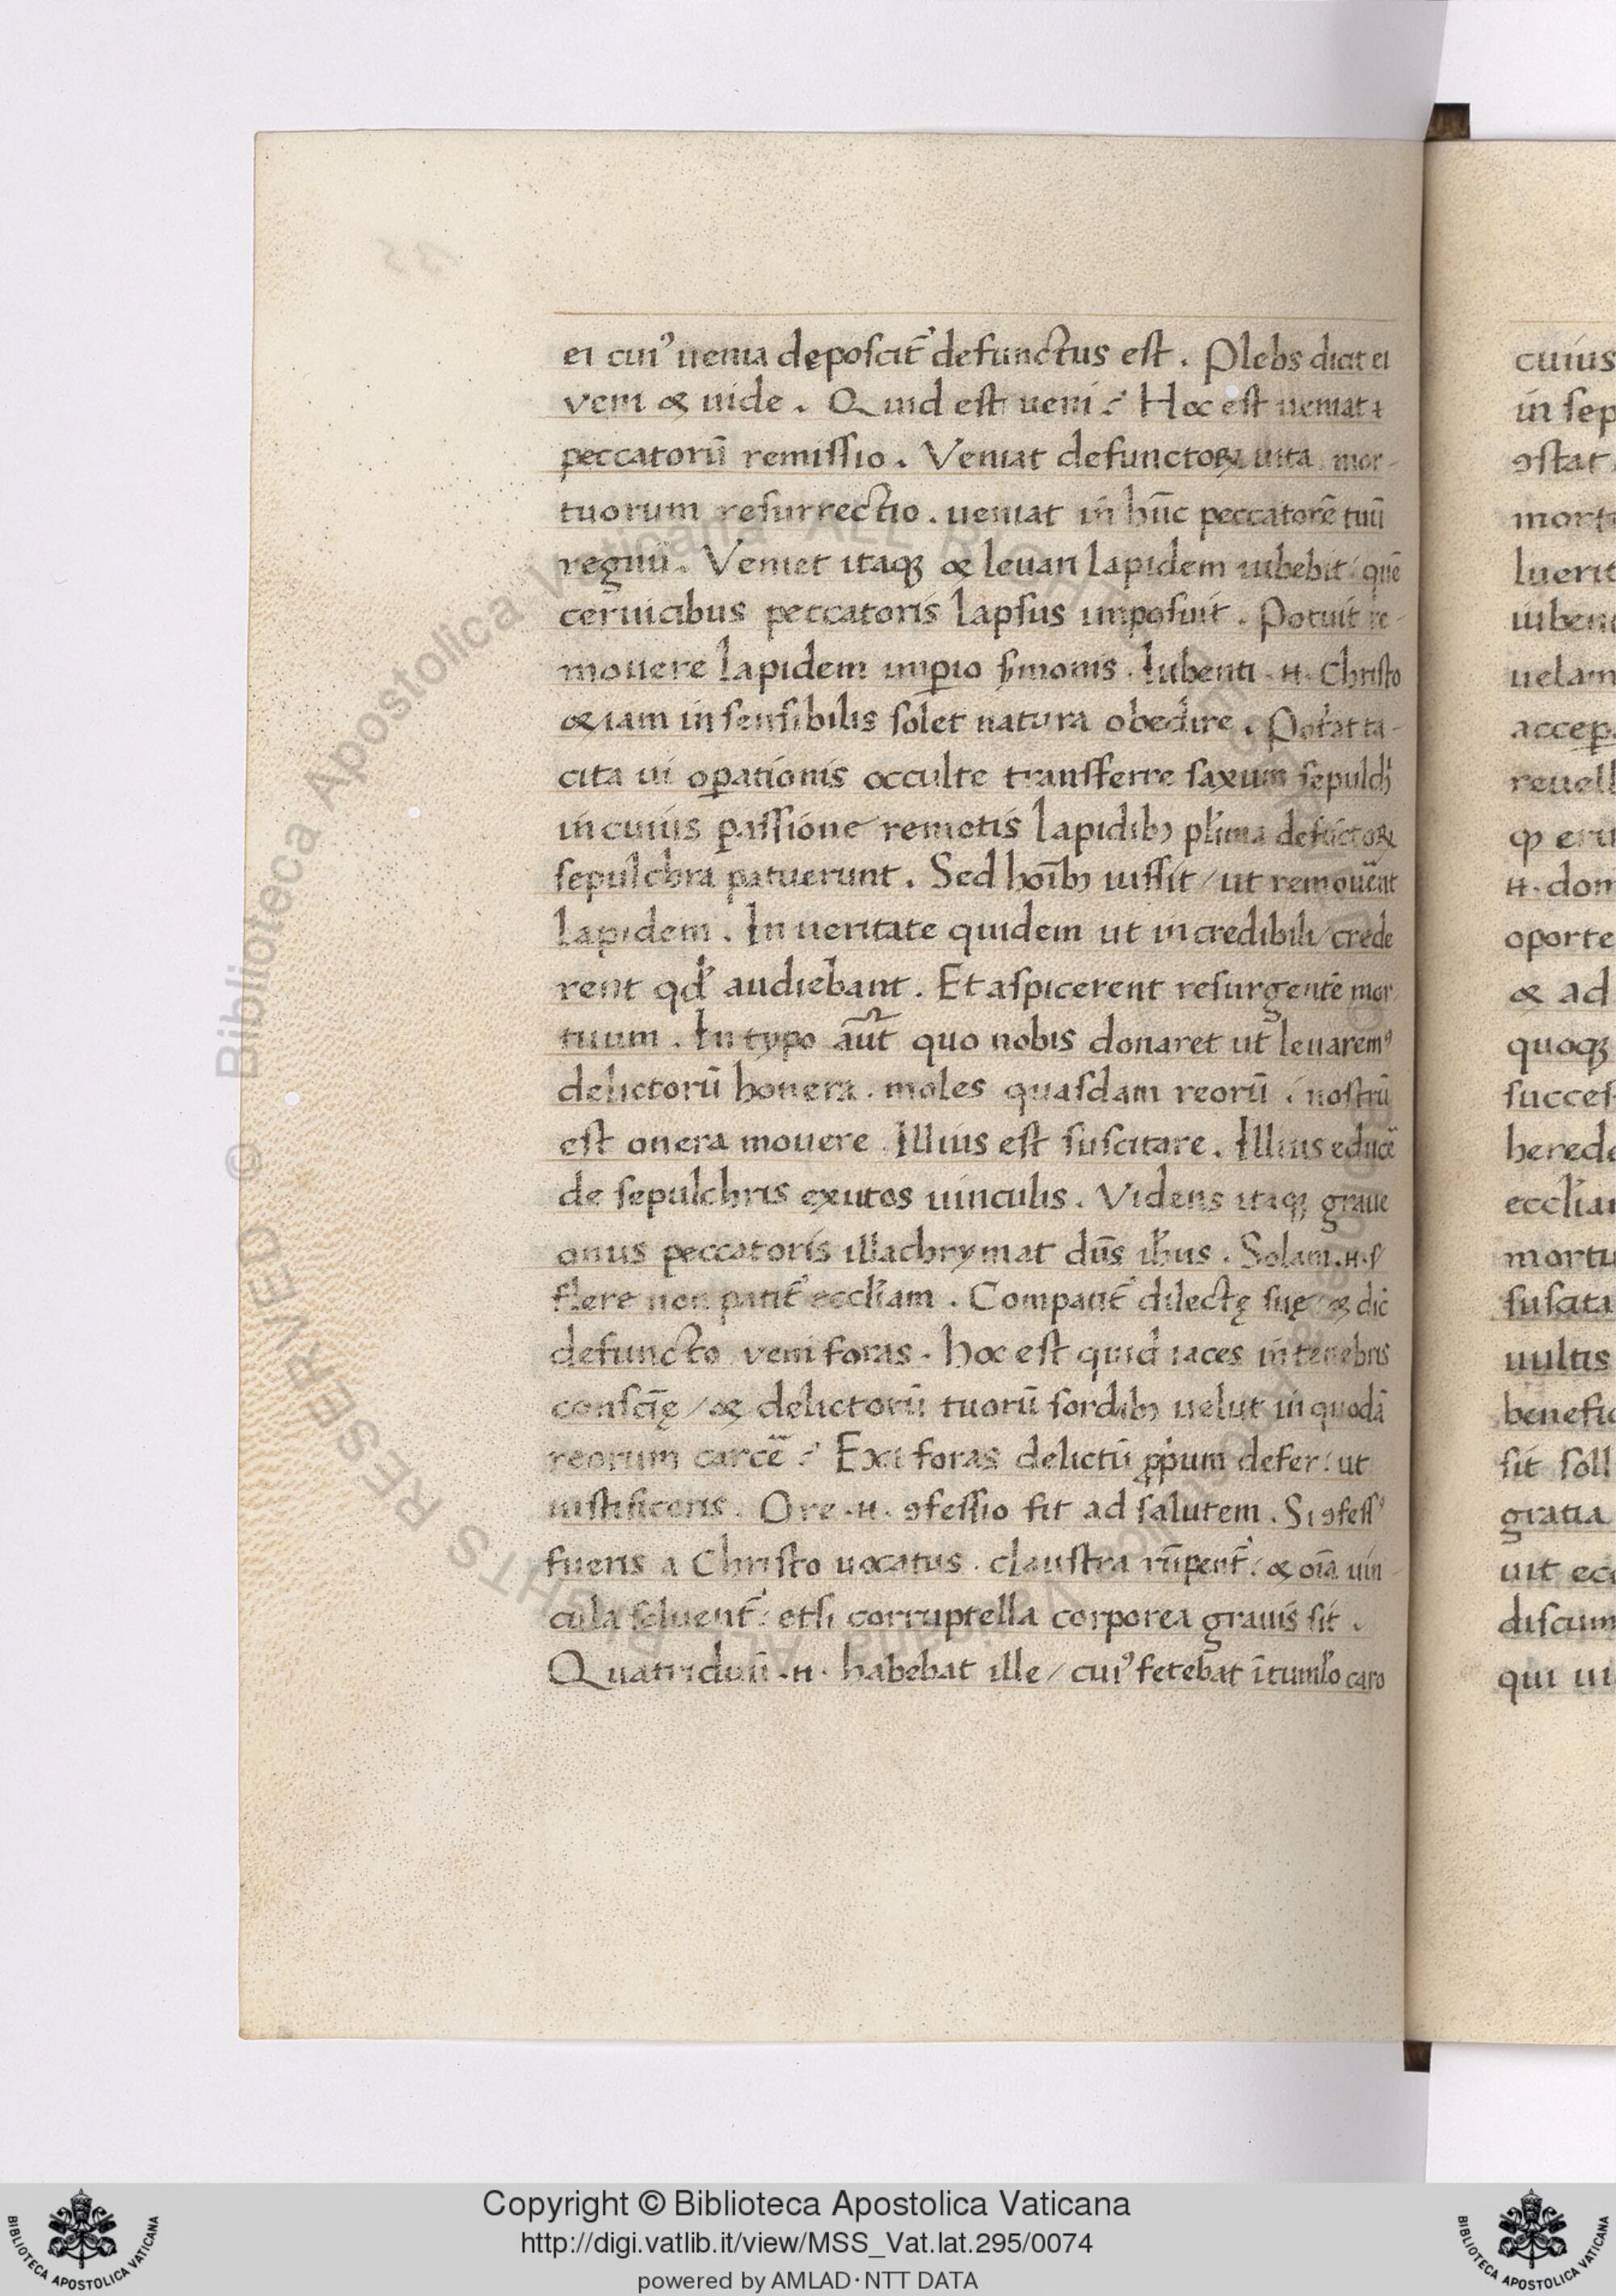 ei cuiꝰ uenia deposcit᷑ defunctus est . Plebs dicat ei
veni & uide . Quid est ueni ? Hoc est ueniat i
peccatorū remissio . Veniat defunctoꝝ uita mor-
tuorum resurrectio . ueniat in hūc peccatorē tuū
regnū . Veniet itaqꝫ & leuari lapidem iubebit / quē
ceruicibus peccatoris lapsus imposuit . Potuit re-
mouere lapidem imꝑio sermonis . Iubenti .n. Christo
& iam insensibilis solet natura obedire . Pot̓at ta-
cita ui oꝑationis occulte transferre saxum sepulch̓
in cuius passione remotis lapidibꝫ pl̓ima defūctoꝝ
sepulchra patuerunt . Sed hoībꝫ iussit / ut remouēnt
lapidem . In ueritate quidem ut incredibili / crede
rent qd̓ audiebant . Et aspicerent resurgentē mor
tuum . In typo aūt quo nobis donaret ut leuaremꝰ
delictorū honera . moles quasdam reorū : nostrū
est onera mouere . Illius est suscitare . Illius educē
de sepulchris exutos uinculis . Videns itaqꝫ graue
onus peccatoris illachrymat dn̄s ih̄us . Solam .n. s̓
flere non patit᷑ eccl̓iam . Compatit᷑ dilectę suę & dic̄
defuncto veni foras . hoc est quid iaces in tenebris
conscię̄ / & delictorū tuorū sordibꝫ uelut in quodā
reorum carcē ? Exi foras delictū ꝓpium defer : ut
iustificeris . Ore .n. ꝯfessio fit ad salutem . Si ꝯfessꝰ
fueris a Christo uocatus . claustra rūpent᷑ : & oīa uin
cula soluent᷑ : etsi corruptella corporea grauis sit .
Quatriduū .n. habebat ille / cuiꝰ fetebat ī tumlo caro
cuius
in sep
ꝯstat
luerit
uelam
accep
oporte
& ad
quoqꝫ
succes
herede
mortu
suscita
uultis
sit soll
gratia
uit ecc
qui ui
© Biblioteca Apostolica Vaticana ALL RIGHTS RESERVED
Copyright © Biblioteca Apostolica Vaticana
http://digi.vatlib.it/view/MSS_Vat.lat.295/0074
powered by AMLAD·NTT DATA
BIBLIOTECA APOSTOLICA VATICANA
BIBLIOTECA APOSTOLICA VATICANA